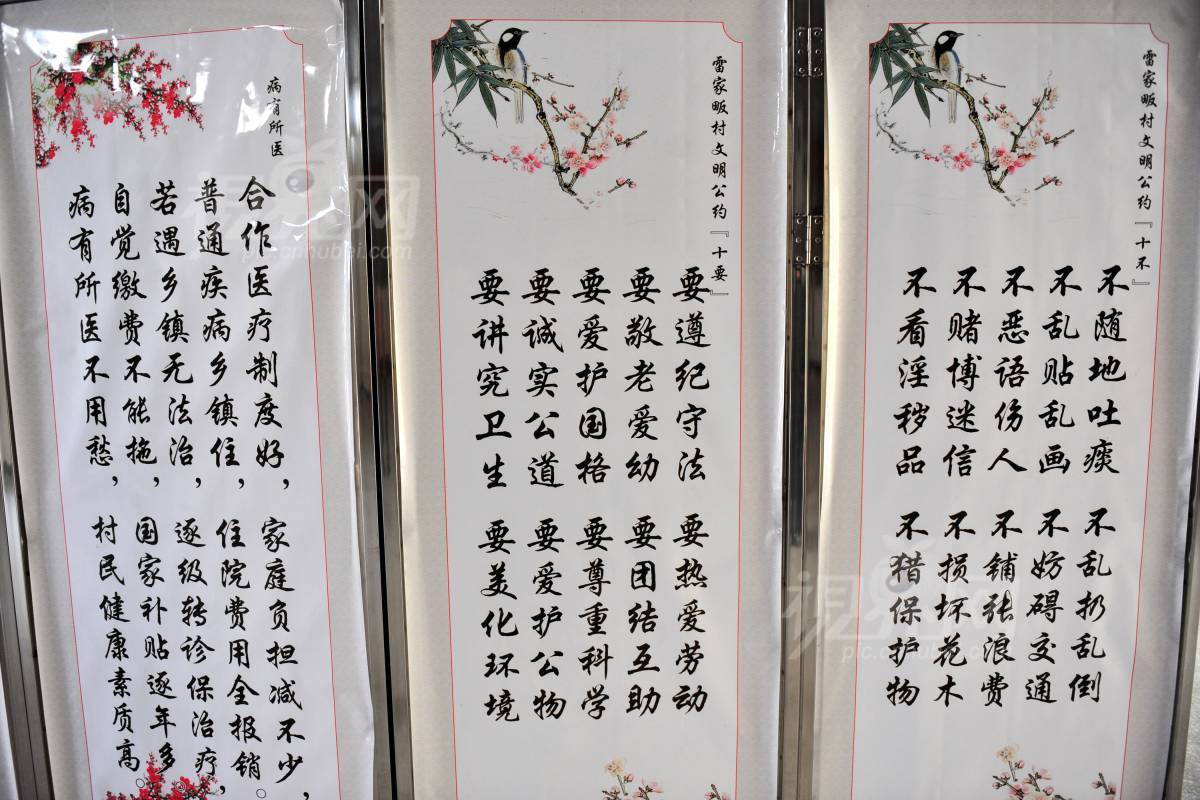 病有所医
合作医疗制度好，家庭负担减不少，
普通疾病乡镇住，住院费用全报销。
若遇乡镇无法治，逐级转诊保治疗，
自觉缴费不能拖，国家补贴逐年多。
病有所医不用愁，村民健康素质高。
雷家畈村文明公约『十要』
要遵纪守法 要热爱劳动
要敬老爱幼 要团结互助
要爱护国格 要尊重科学
要诚实公道 要爱护公物
要讲究卫生 要美化环境
雷家畈村文明公约『十不』
不随地吐痰 不乱扔乱倒
不乱贴乱画 不妨碍交通
不恶语伤人 不铺张浪费
不赌博迷信 不损坏花木
不看淫秽品 不猎保护物
pic.cnhubei.com